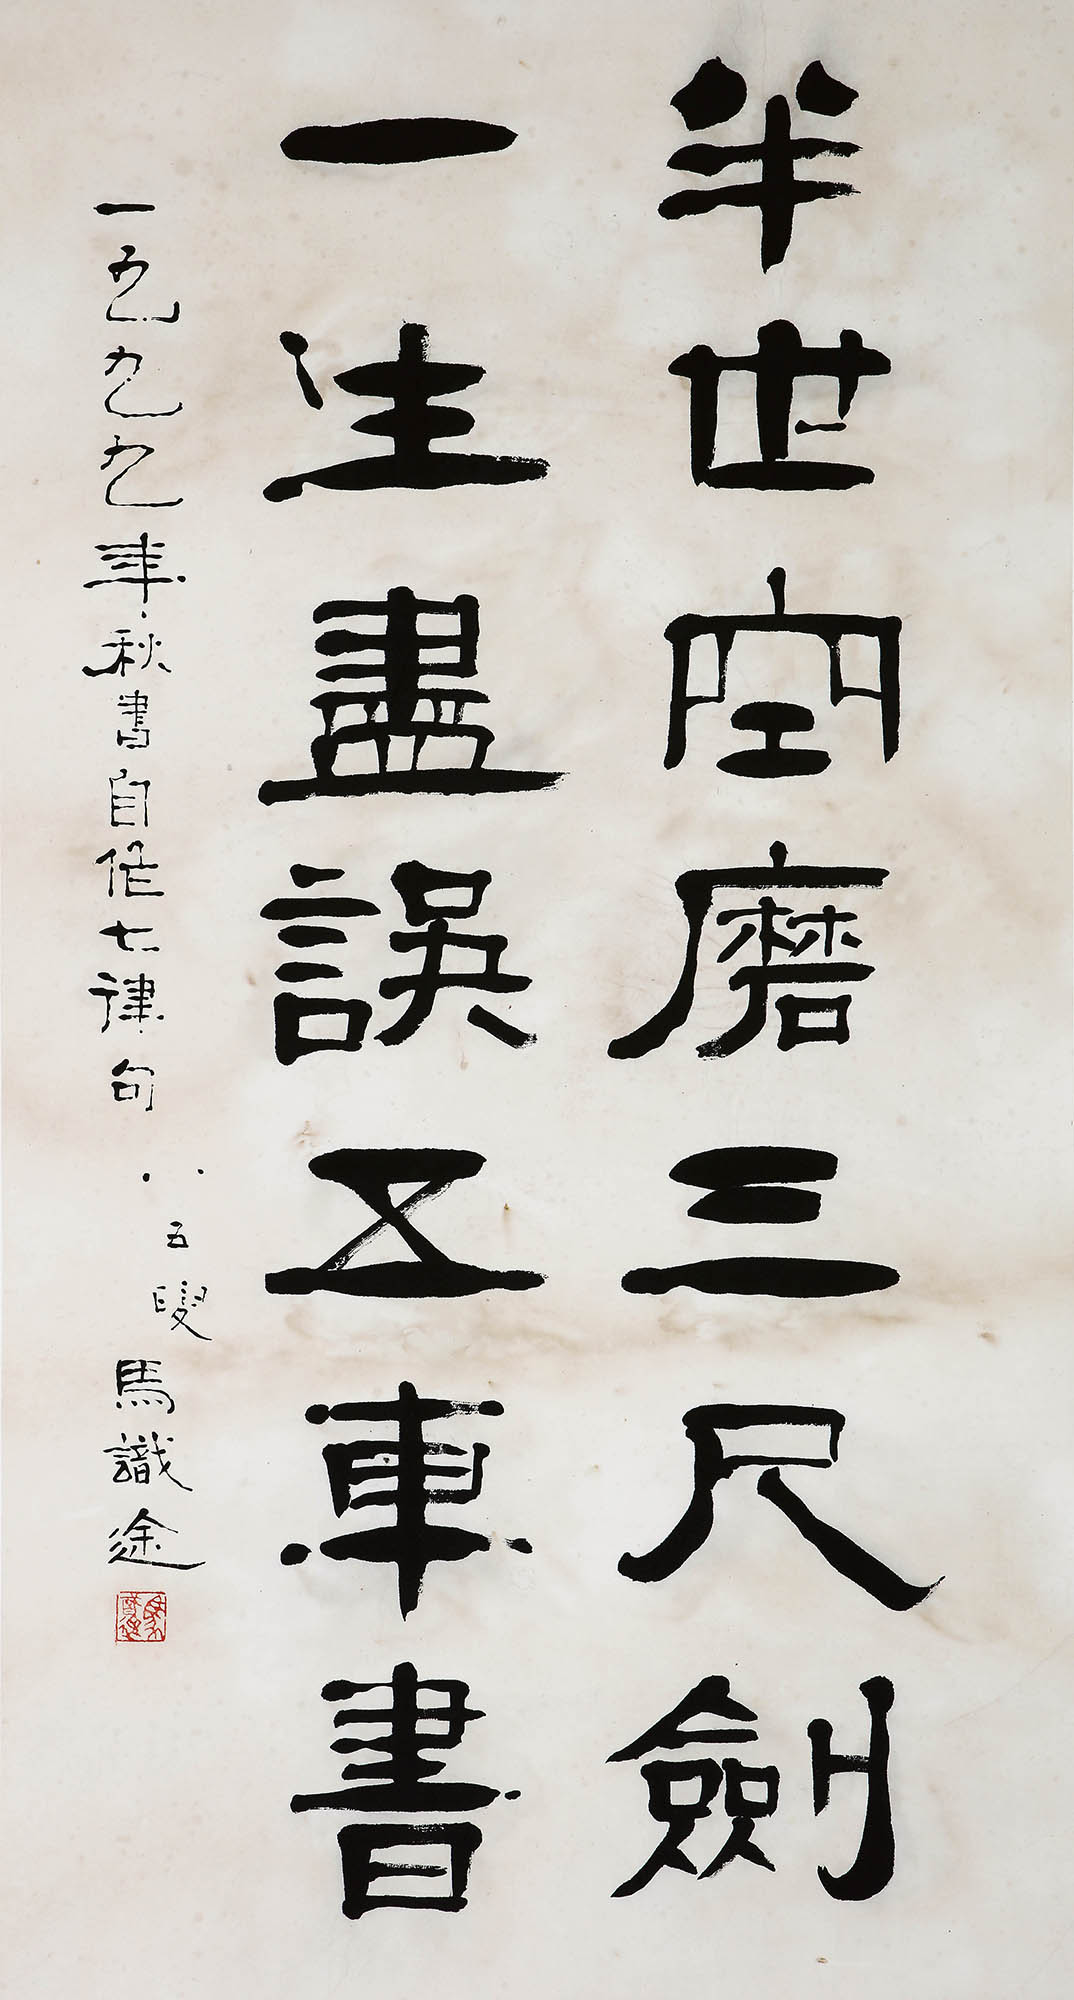 半世空磨三尺劍
一生盡誤五車書
一九九九年秋書自作七律句
八五叟
馬識途